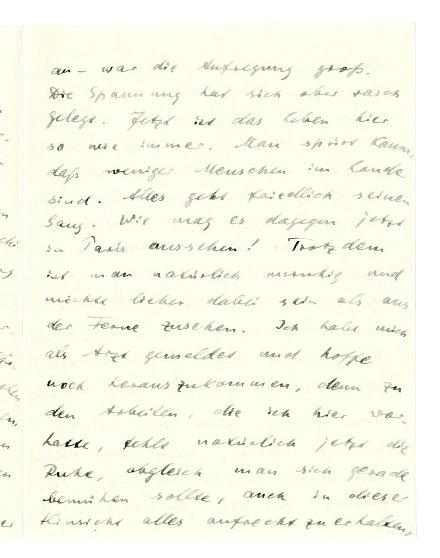 an – war die Aufregung groß.
Die Spannung hat sich aber rasch
gelegt. Jetzt ist das Leben hier
so wie immer. Man spürt kaum,
daß weniger Menschen im Lande
sind. Alles geht friedlich seinen
Gang. Wie mag es dagegen jetzt
in Paris aussehen! Trotzdem
ist man natürlich unruhig und
möchte lieber dabei sein als aus
der Ferne zusehen. Ich habe mich
als Arzt gemeldet und hoffe
noch herauszukommen, denn zu
den Arbeiten, die ich hier vor-
hatte, fehlt natürlich jetzt die
Ruhe, obgleich man sich gerade
bemühen sollte, auch in dieser
Hinsicht alles aufrecht zu erhalten,